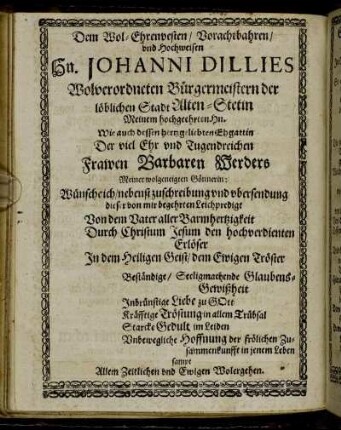 Dem Wol-Ehrenvesten/ Vorachtbahren/
und Hochweisen
Hn. JOHANNI DILLIES
Wolverordneten Bürgermeistern der
löblichen Stadt Alten-Stetin
Meinem hochgeehrten Hn.
Wie auch dessen hertzgeliebten Ehgattin
Der viel Ehr und Tugendreichen
Frawen Barbaren Werders
Meiner wolgeneigten Gönnerin:
Wünsche ich/ nebenst zuschreibung und ubersendung
dieser von mir begehrten Leichpredigt
Von dem Vater aller Barmhertzigkeit
Durch Christum Jesum den hochverdienten
Erlöser
In dem Heiligen Geist/ dem Ewigen Tröster
Beständige/ Seeligmachende Glaubens-
Gewißheit
Inbrünstige Liebe zu GOtt
Kräfftige Tröstung in allem Trübsal
Starcke Gedult im Leiden
Unbewegliche Hoffnung der frölichen Zu-
sammenkunfft in jenem Leben
sampt
Allem Zeitlichen und Ewigen Wolergehen.